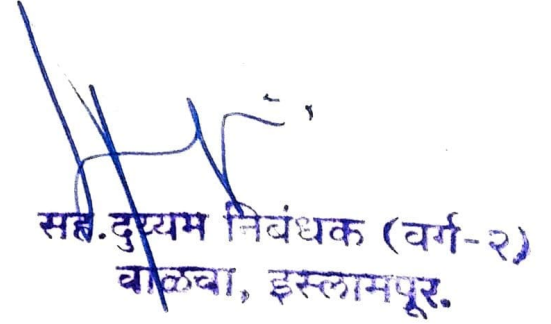 सह.दुय्यम निबंधक (वर्ग-२)
वाळवा, इस्लामपूर.